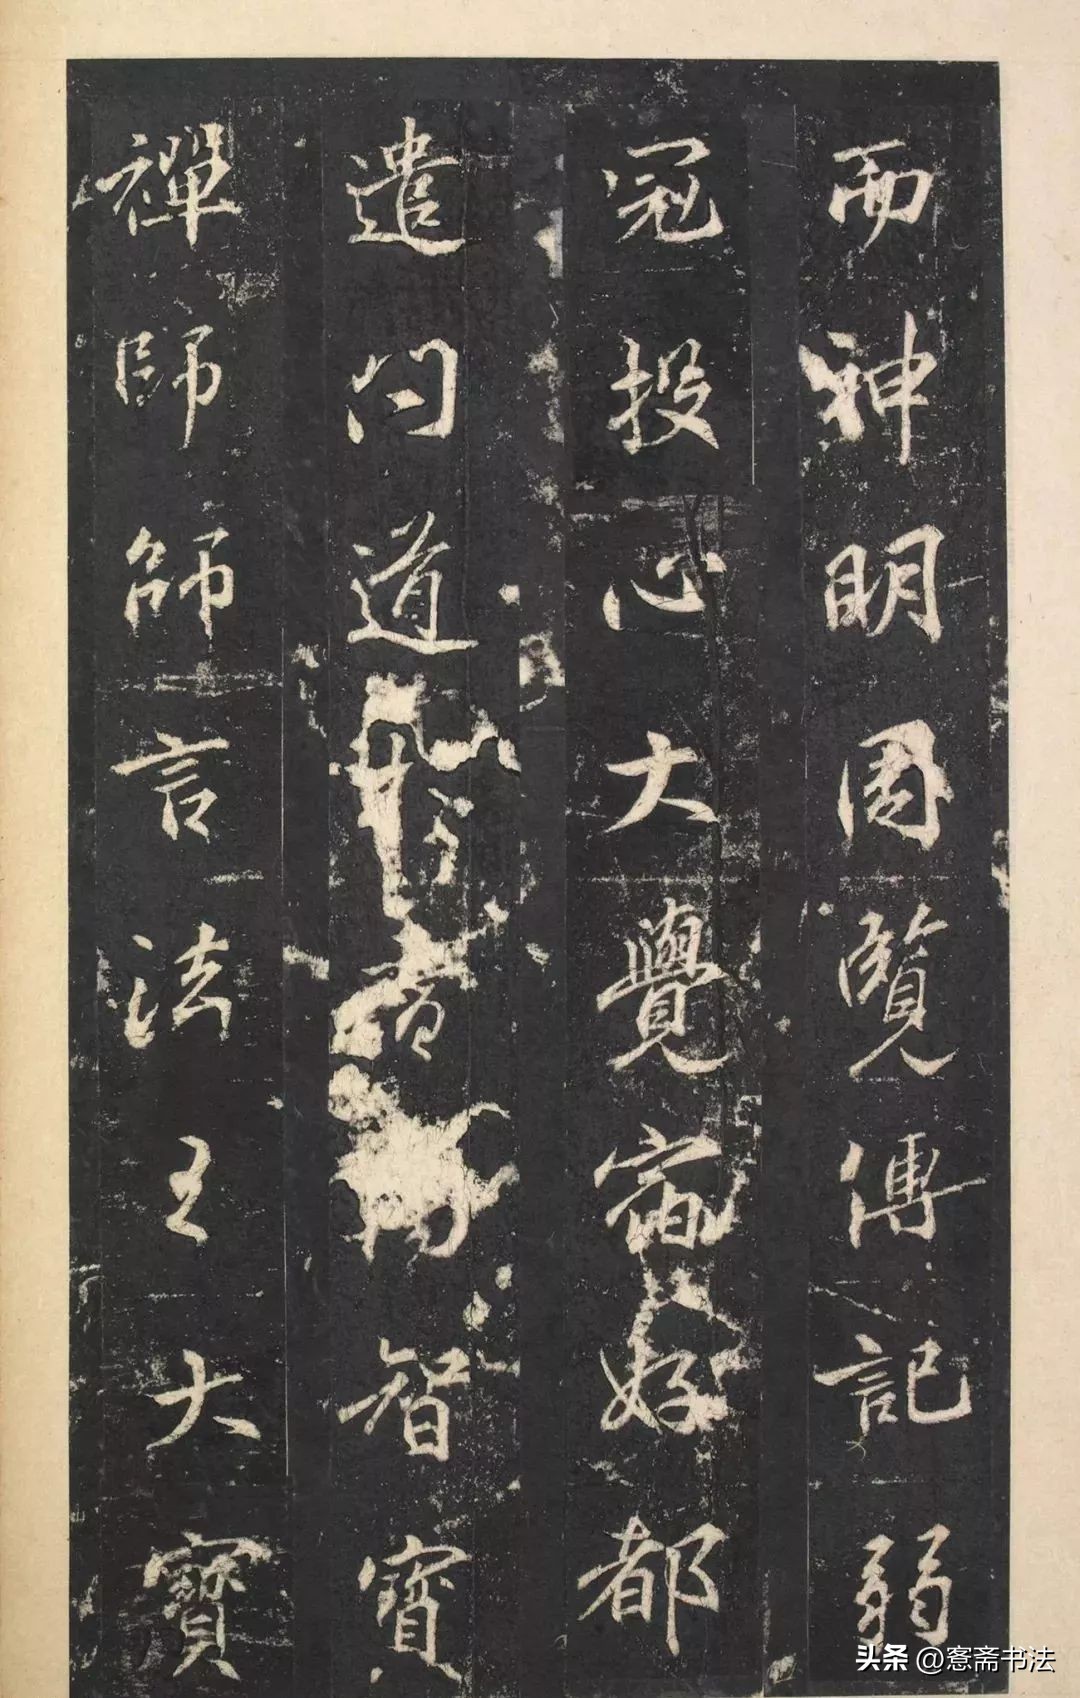 而神明周覽傳記弱
冠投心大覺宿好都
遣問道智寶
禪師師言法王大寶
头条 @愙斋书法